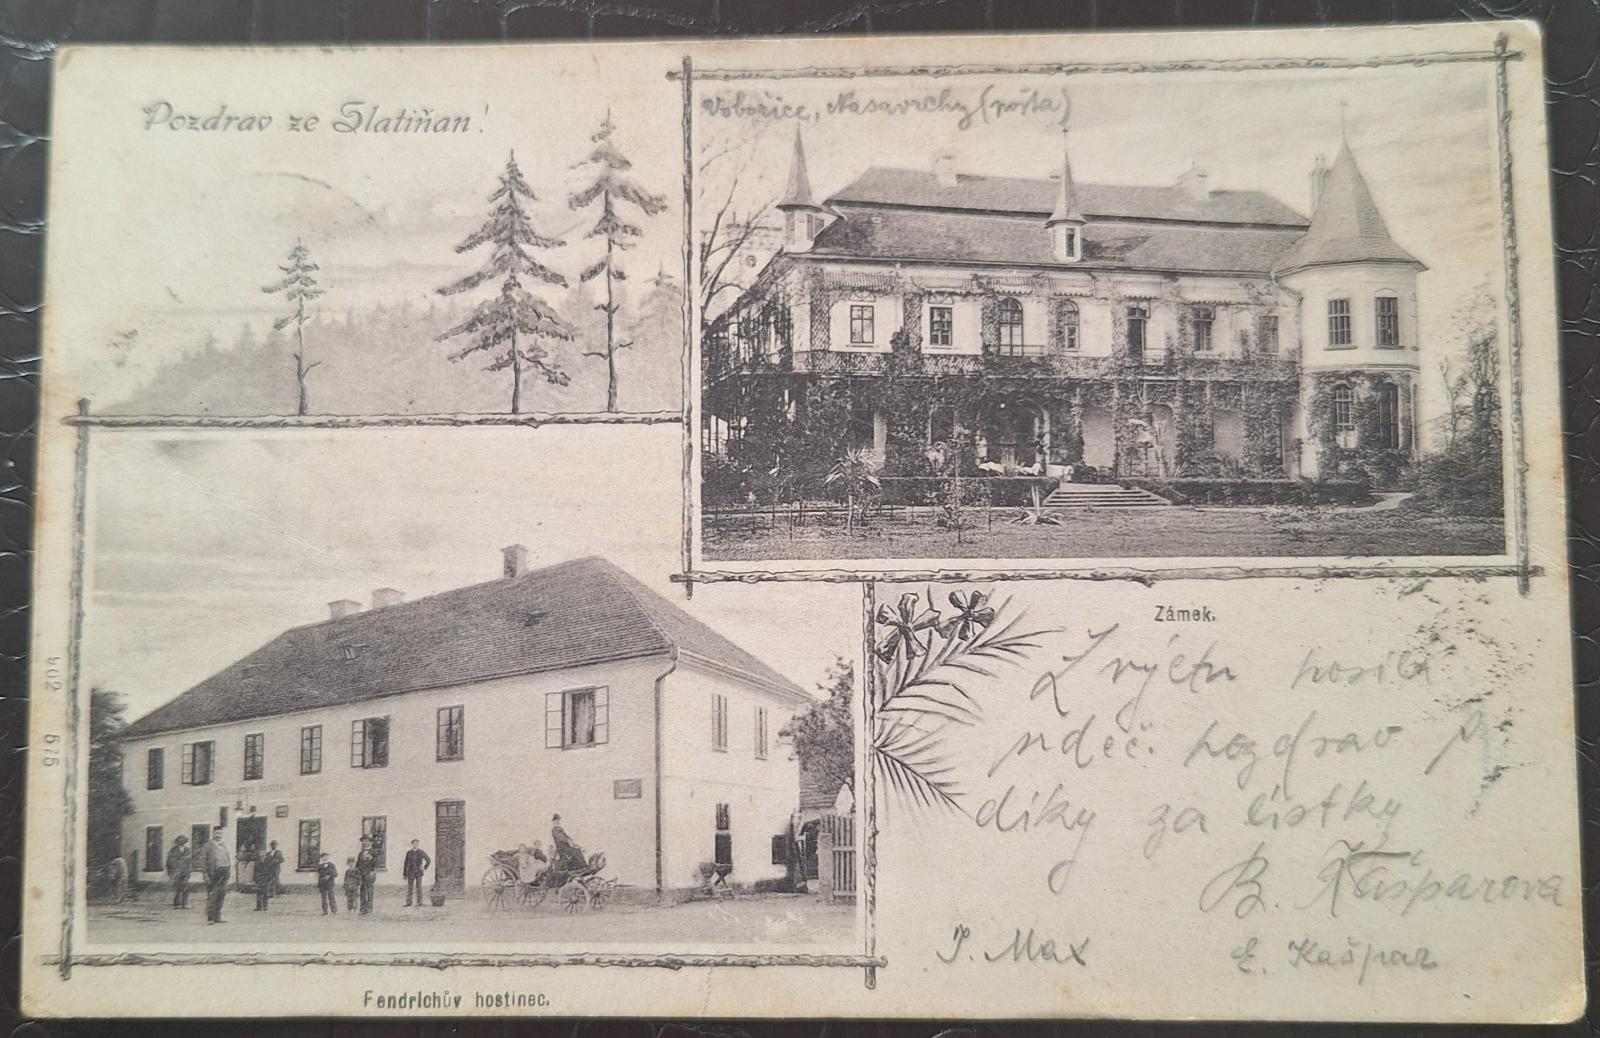 Pozdrav ze Slatiňan!
Vobořice, Nasavrchy (pošta)
Zámek.
Z výletu posílá
srdeč. pozdrav a
díky za lístky
B. Kašparova
E. Kašpar
P. Max
Fendrichův hostinec.
902 575